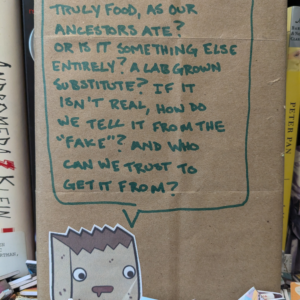 TRULY FOOD, AS OUR
ANCESTORS ATE?
OR IS IT SOMETHING ELSE
ENTIRELY? A LAB GROWN
SUBSTITUTE? IF IT
ISN'T REAL, HOW DO
WE TELL IT FROM THE
"FAKE"? AND WHO
CAN WE TRUST TO
GET IT FROM?
ANDROMEDA KLEIN
PETER PAN